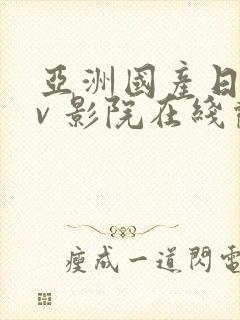 亞洲國產日
v影院在綫
瘦成一道閃電